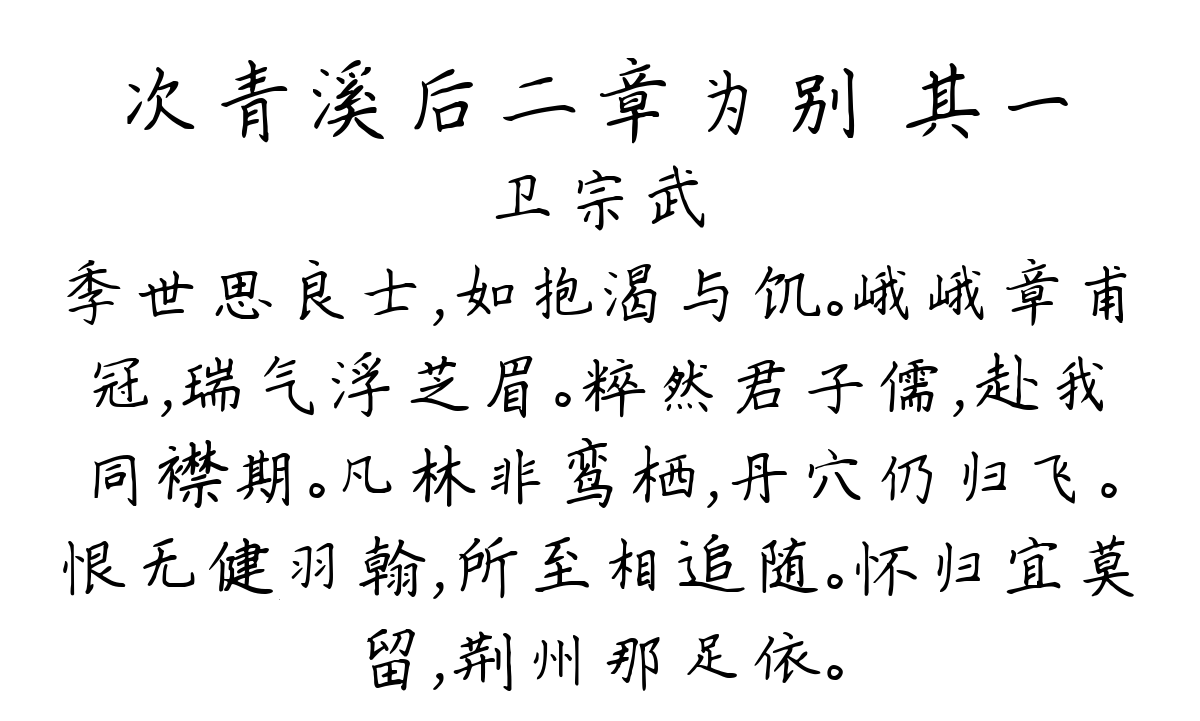 次青溪后二章为别 其一
卫宗武
季世思良士,如抱渴与饥。峨峨章甫
冠,瑞气浮芝眉。粹然君子儒,赴我
同襟期。凡林非鸾栖,丹穴仍归飞。
恨无健羽翰,所至相追随。怀归宜莫
留,荆州那足依。